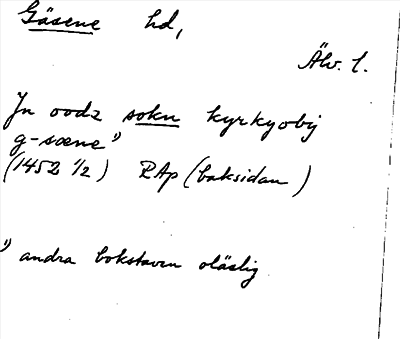 Gäsene hd,
Älv. l.
Jn oodz sokn kyrkyoby
g-sæne ¹⁾
(1452 1/2) RAp (baksidan)
¹⁾ andra bokstaven oläslig